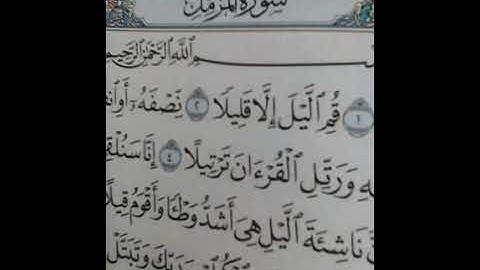 سُورَةُ المُزَّمِّلِ
ٱللَّهِ ٱلرَّحْمَٰنِ ٱلرَّحِيمِ
١ قُمِ ٱلَّيْلَ إِلَّا قَلِيلًا ٢ نِّصْفَهُۥٓ أَوِ ٱنقُ
وَرَتِّلِ ٱلْقُرْءَانَ تَرْتِيلًا ٤ إِنَّا سَنُلْقِ
نَاشِئَةَ ٱلَّيْلِ هِىَ أَشَدُّ وَطْـًٔا وَأَقْوَمُ قِيلًا
رَبِّكَ وَتَبَتَّلْ